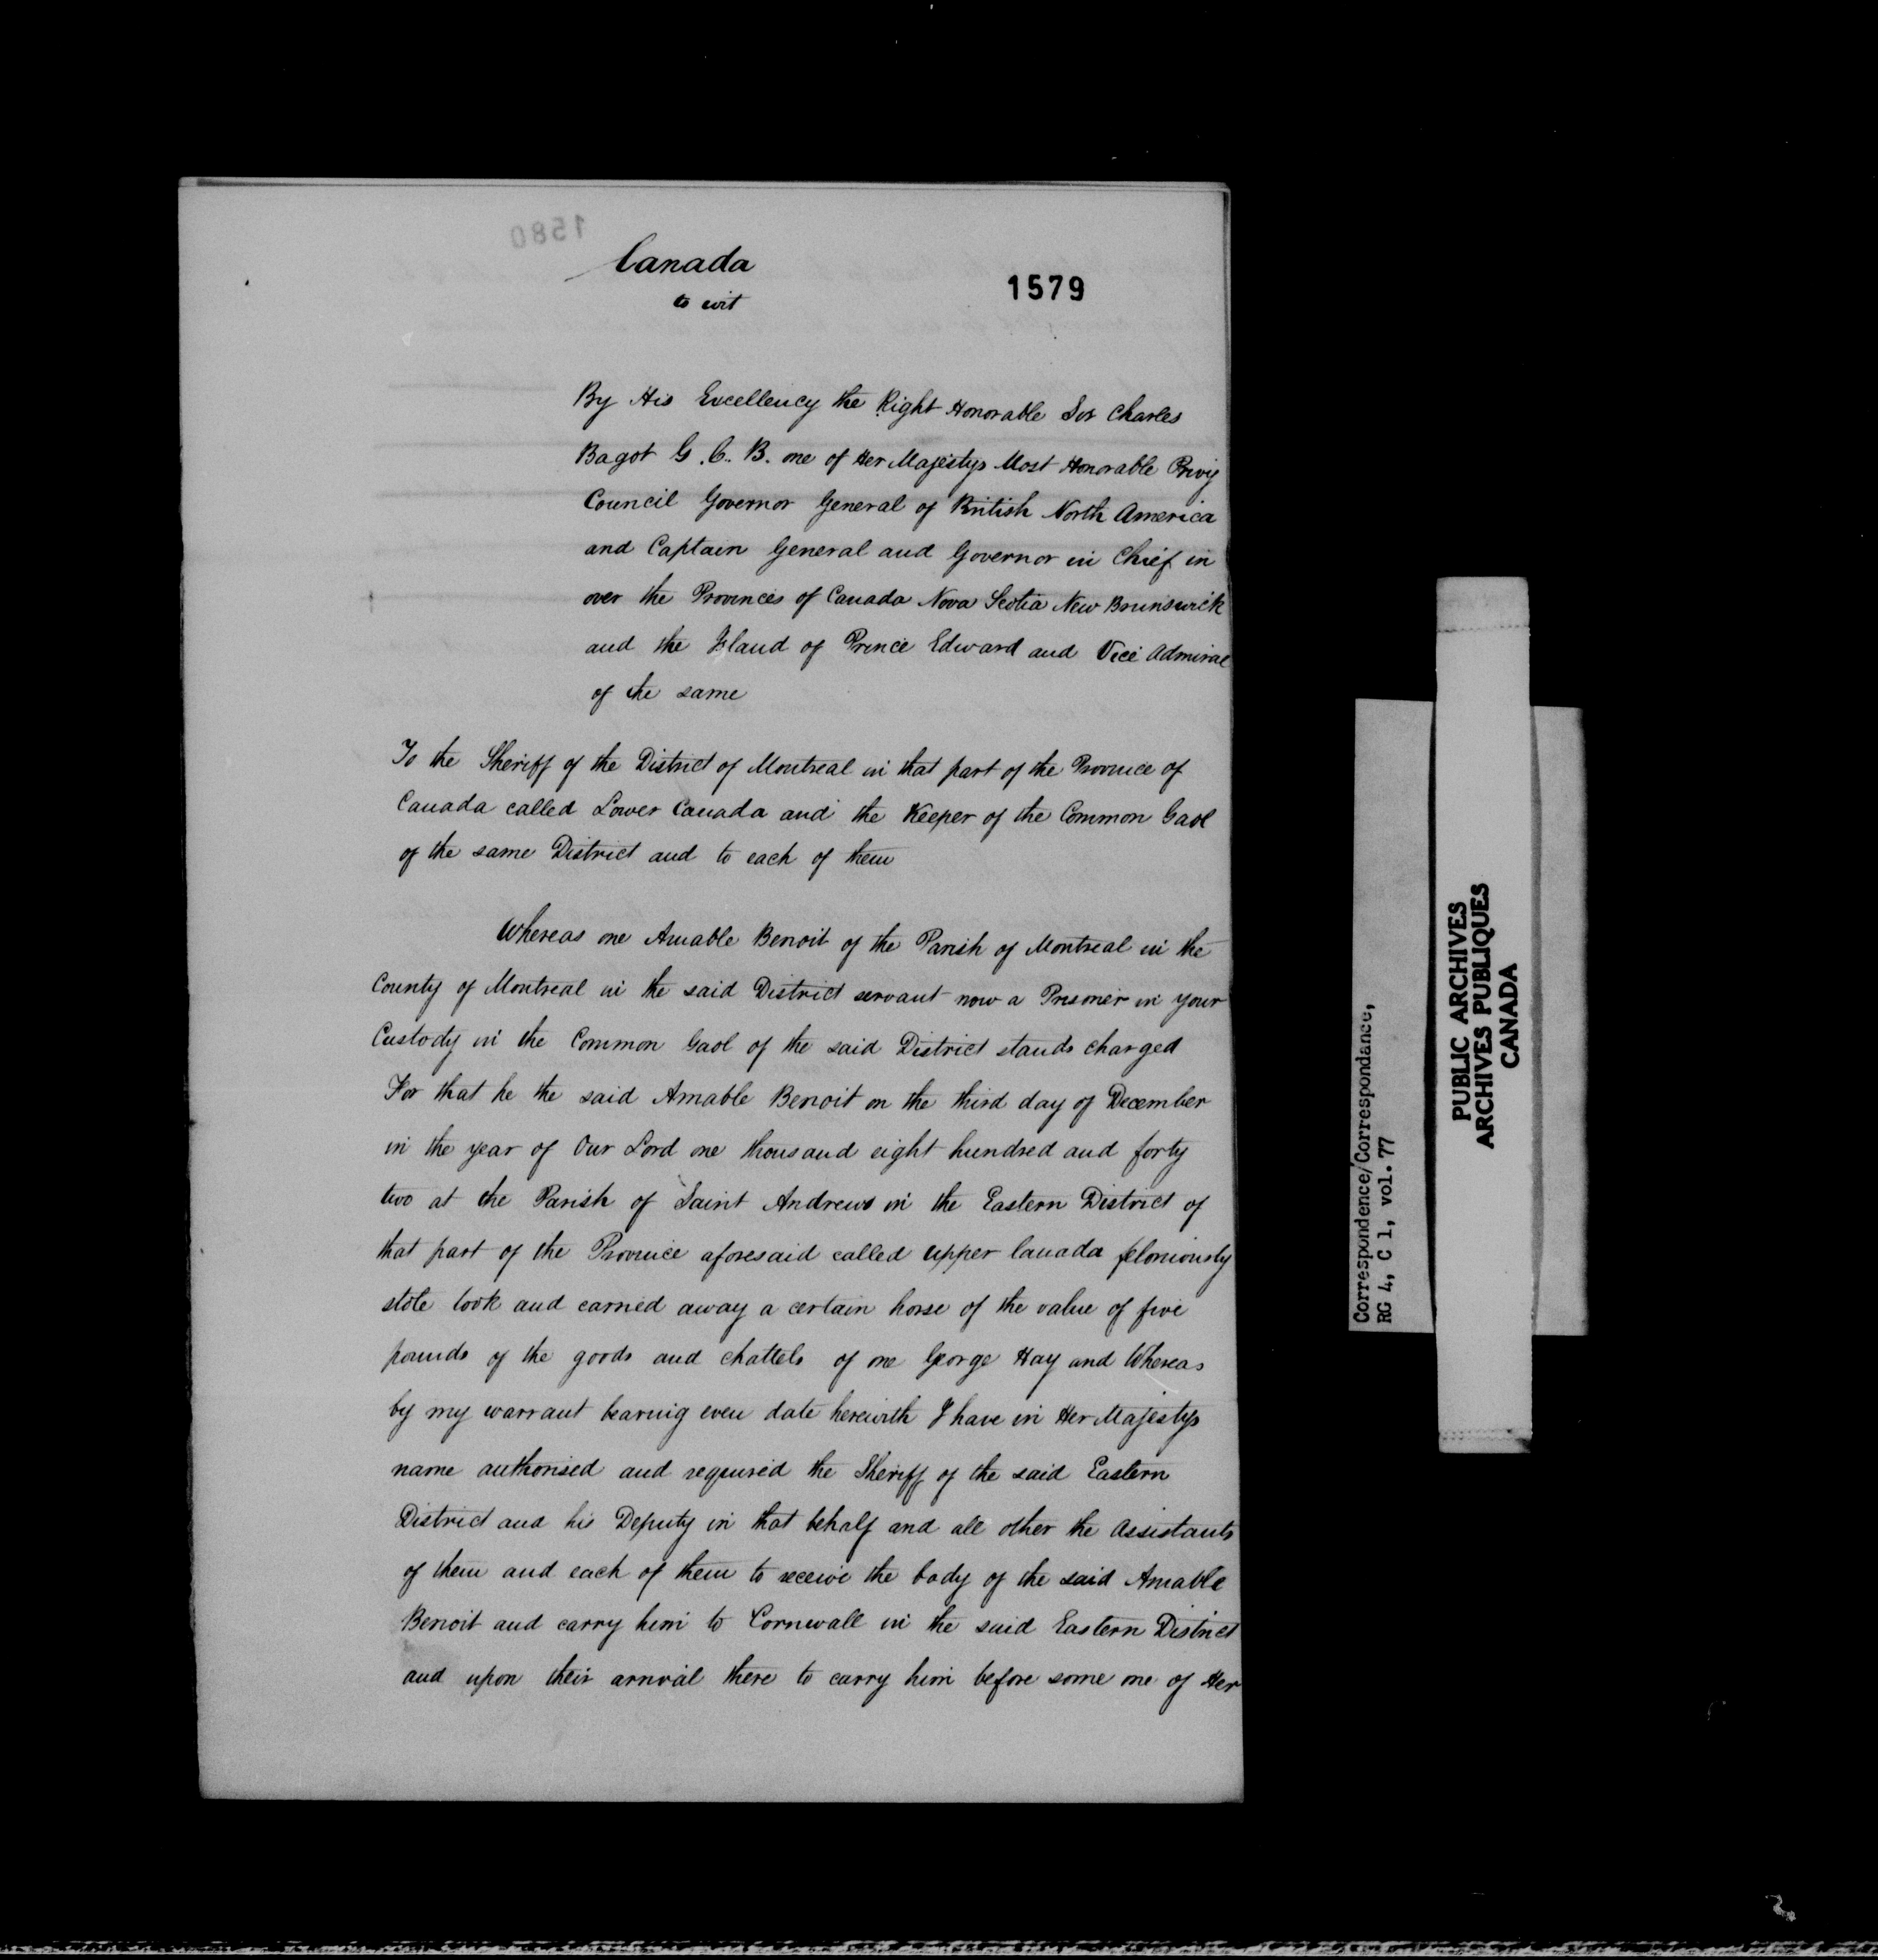 1580
Canada
to wit
1579
By His Excellency the Right Honorable Sir Charles
Bagot G.C.B. one of Her Majestys Most Honorable Privy
Council Governor General of British North America
and Captain General and Governor in Chief in
over the Provinces of Canada Nova Scotia New Brunswick
and the Island of Prince Edward and Vice Admiral
of the same
To the Sheriff of the District of Montreal in that part of the Province of
Canada called Lower Canada and the Keeper of the Common Gaol
of the same District and to each of them
Whereas one Amable Benoit of the Parish of Montreal in the
County of Montreal in the said District servant now a Prisoner in your
Custody in the Common Gaol of the said District stands charged
For that he the said Amable Benoit on the third day of December
in the year of Our Lord one thousand eight hundred and forty
two at the Parish of Saint Andrews in the Eastern District of
that part of the Province aforesaid called Upper Canada feloniously
stole took and carried away a certain horse of the value of five
pounds of the goods and chattels of one George Hay and Whereas
by my warrant bearing even date herewith I have in Her Majestys
name authorised and required the Sheriff of the said Eastern
District and his Deputy in that behalf and all other the Assistants
of them and each of them to receive the body of the said Amable
Benoit and carry him to Cornwall in the said Eastern District
and upon their arrival there to carry him before some one of Her
Correspondence/Correspondance,
RG 4, C 1, vol. 77
PUBLIC ARCHIVES
ARCHIVES PUBLIQUES
CANADA